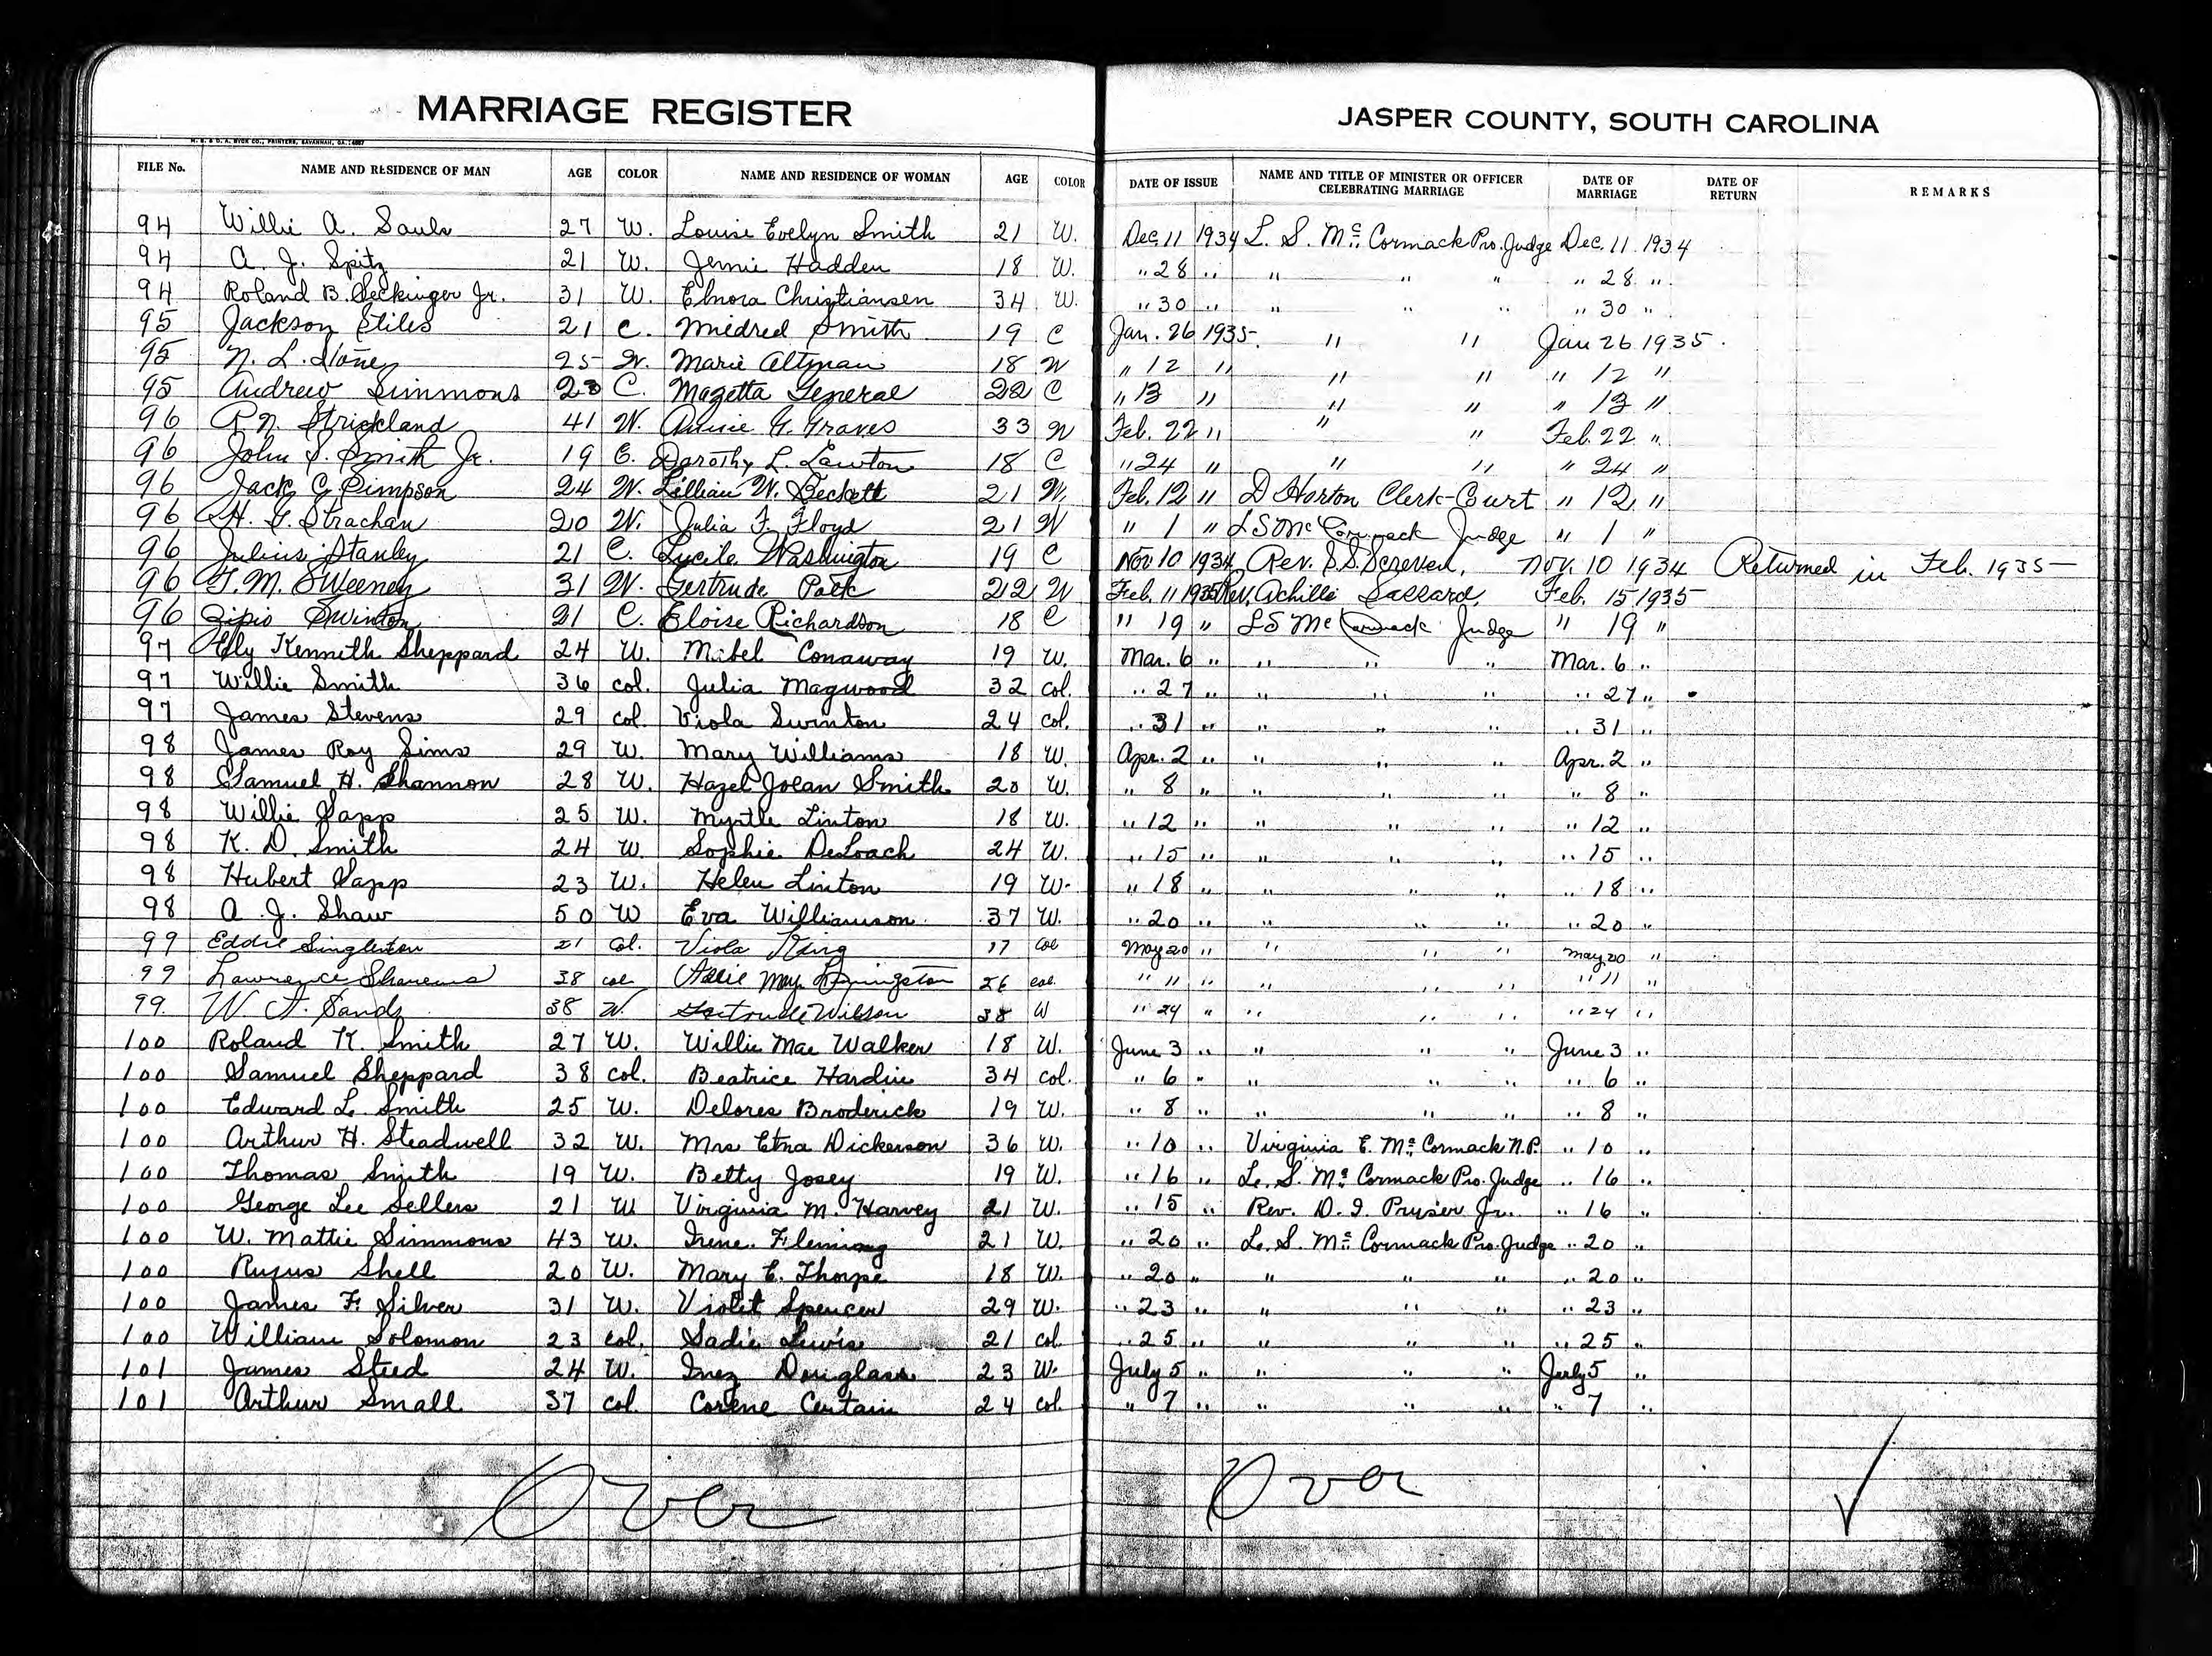 MARRIAGE REGISTER
JASPER COUNTY, SOUTH CAROLINA
FILE No. NAME AND RESIDENCE OF MAN AGE COLOR NAME AND RESIDENCE OF WOMAN AGE COLOR DATE OF ISSUE NAME AND TITLE OF MINISTER OR OFFICER CELEBRATING MARRIAGE DATE OF MARRIAGE DATE OF RETURN REMARKS
94 Willie A. Sauls 27 W. Louise Evelyn Smith 21 W. Dec. 11 1934 L. S. McCormack Pro. Judge Dec. 11 1934
94 A. J. Spitz 21 W. Jennie Hadden 18 W. " 28 " " " " " 28 "
94 Roland B. Seckinger Jr. 31 W. Elnora Christiansen 34 W. " 30 " " " " " 30 "
95 Jackson Stiles 21 C. Mildred Smith 19 C Jan. 26 1935 " " Jan 26 1935.
95 N. L. Stone 25 W. Marie Altman 18 W " 12 " " " " 12 "
95 Andrew Simmons 23 C. Mazetta General 22 C " 13 " " " " 13 "
96 R. N. Strickland 41 W. Annie G. Graves 33 W Feb. 22 " " " Feb. 22 "
96 John S. Smith Jr. 19 C. Dorothy L. Lawton 18 C " 24 " " " " 24 "
96 Jack C Simpson 24 W. Lillian W. Beckett 21 W. Feb. 12 " D Horton Clerk-Court " 12 "
96 H. G. Strachan 20 W. Julia F. Floyd 21 W " 1 " L S McCormack Judge " 1 "
96 Julius Stanley 21 C. Lucile Washington 19 C Nov 10 1934 Rev. S. S. Screven. Nov. 10 1934 Returned in Feb. 1935
96 T. M. Sweeney 31 W. Gertrude Polk 22 W Feb. 11 1935 Rev. Achille Sallard. Feb. 15 1935
96 Zipio Swinton 21 C. Eloise Richardson 18 C " 19 " L S McCormack Judge " 19 "
97 Ely Kenneth Sheppard 24 W. Mibel Conaway 19 W. Mar. 6 " " " " Mar. 6 "
97 Willie Smith 36 col. Julia Magwood 32 col. " 27 " " " " " 27 "
97 James Stevens 29 col. Viola Swinton 24 col. " 31 " " " " " 31 "
98 James Roy Sims 29 W. Mary Williams 18 W. Apr. 2 " " " " Apr. 2 "
98 Samuel H. Shannon 28 W. Hazel Joean Smith 20 W. " 8 " " " " " 8 "
98 Willie Sapp 25 W. Myrtle Linton 18 W. " 12 " " " " " 12 "
98 K. D. Smith 24 W. Sophie DeLoach 24 W. " 15 " " " " " 15 "
98 Hubert Sapp 23 W. Helen Linton 19 W. " 18 " " " " " 18 "
98 A. J. Shaw 50 W Eva Williamson 37 W. " 20 " " " " " 20 "
99 Eddie Singleton 21 Col. Viola King 17 Col May 20 " " " " May 20 "
99 Lawrence 38 col May 26 col. " 11 " " " " " 11 "
99. W. Sands 38 W. Gertrude Wilson 38 W " 24 " " " " " 24 "
100 Roland K. Smith 27 W. Willie Mae Walker 18 W. June 3 " " " " June 3 "
100 Samuel Sheppard 38 col. Beatrice Hardin 34 col. " 6 " " " " " 6 "
100 Edward L. Smith 25 W. Delores Broderick 19 W. " 8 " " " " " 8 "
100 Arthur H. Steadwell 32 W. Mrs Etna Dickerson 36 W. " 10 " Virginia E. McCormack N.P. " 10 "
100 Thomas Smith 19 W. Betty Josey 19 W. " 16 " L. S. McCormack Pro. Judge " 16 "
100 George Lee Sellers 21 W Virginia M. Harvey 21 W. " 15 " Rev. D. I. Purser Jr. " 16 "
100 W. Mattie Simmons 43 W. Irene Fleming 21 W. " 20 " L. S. McCormack Pro. Judge " 20 "
100 Rufus Shell 20 W. Mary E. Thorpe 18 W. " 20 " " " " " 20 "
100 James F. Silver 31 W. Violet Spencer 29 W. " 23 " " " " " 23 "
100 William Solomon 23 col. Sadie Lewis 21 col. " 25 " " " " " 25 "
101 James Steed 24 W. Inez Douglass 23 W. July 5 " " " " July 5 "
101 Arthur Small 37 col. Corene Certain 24 col. " 7 " " " " " 7 "
Over Over